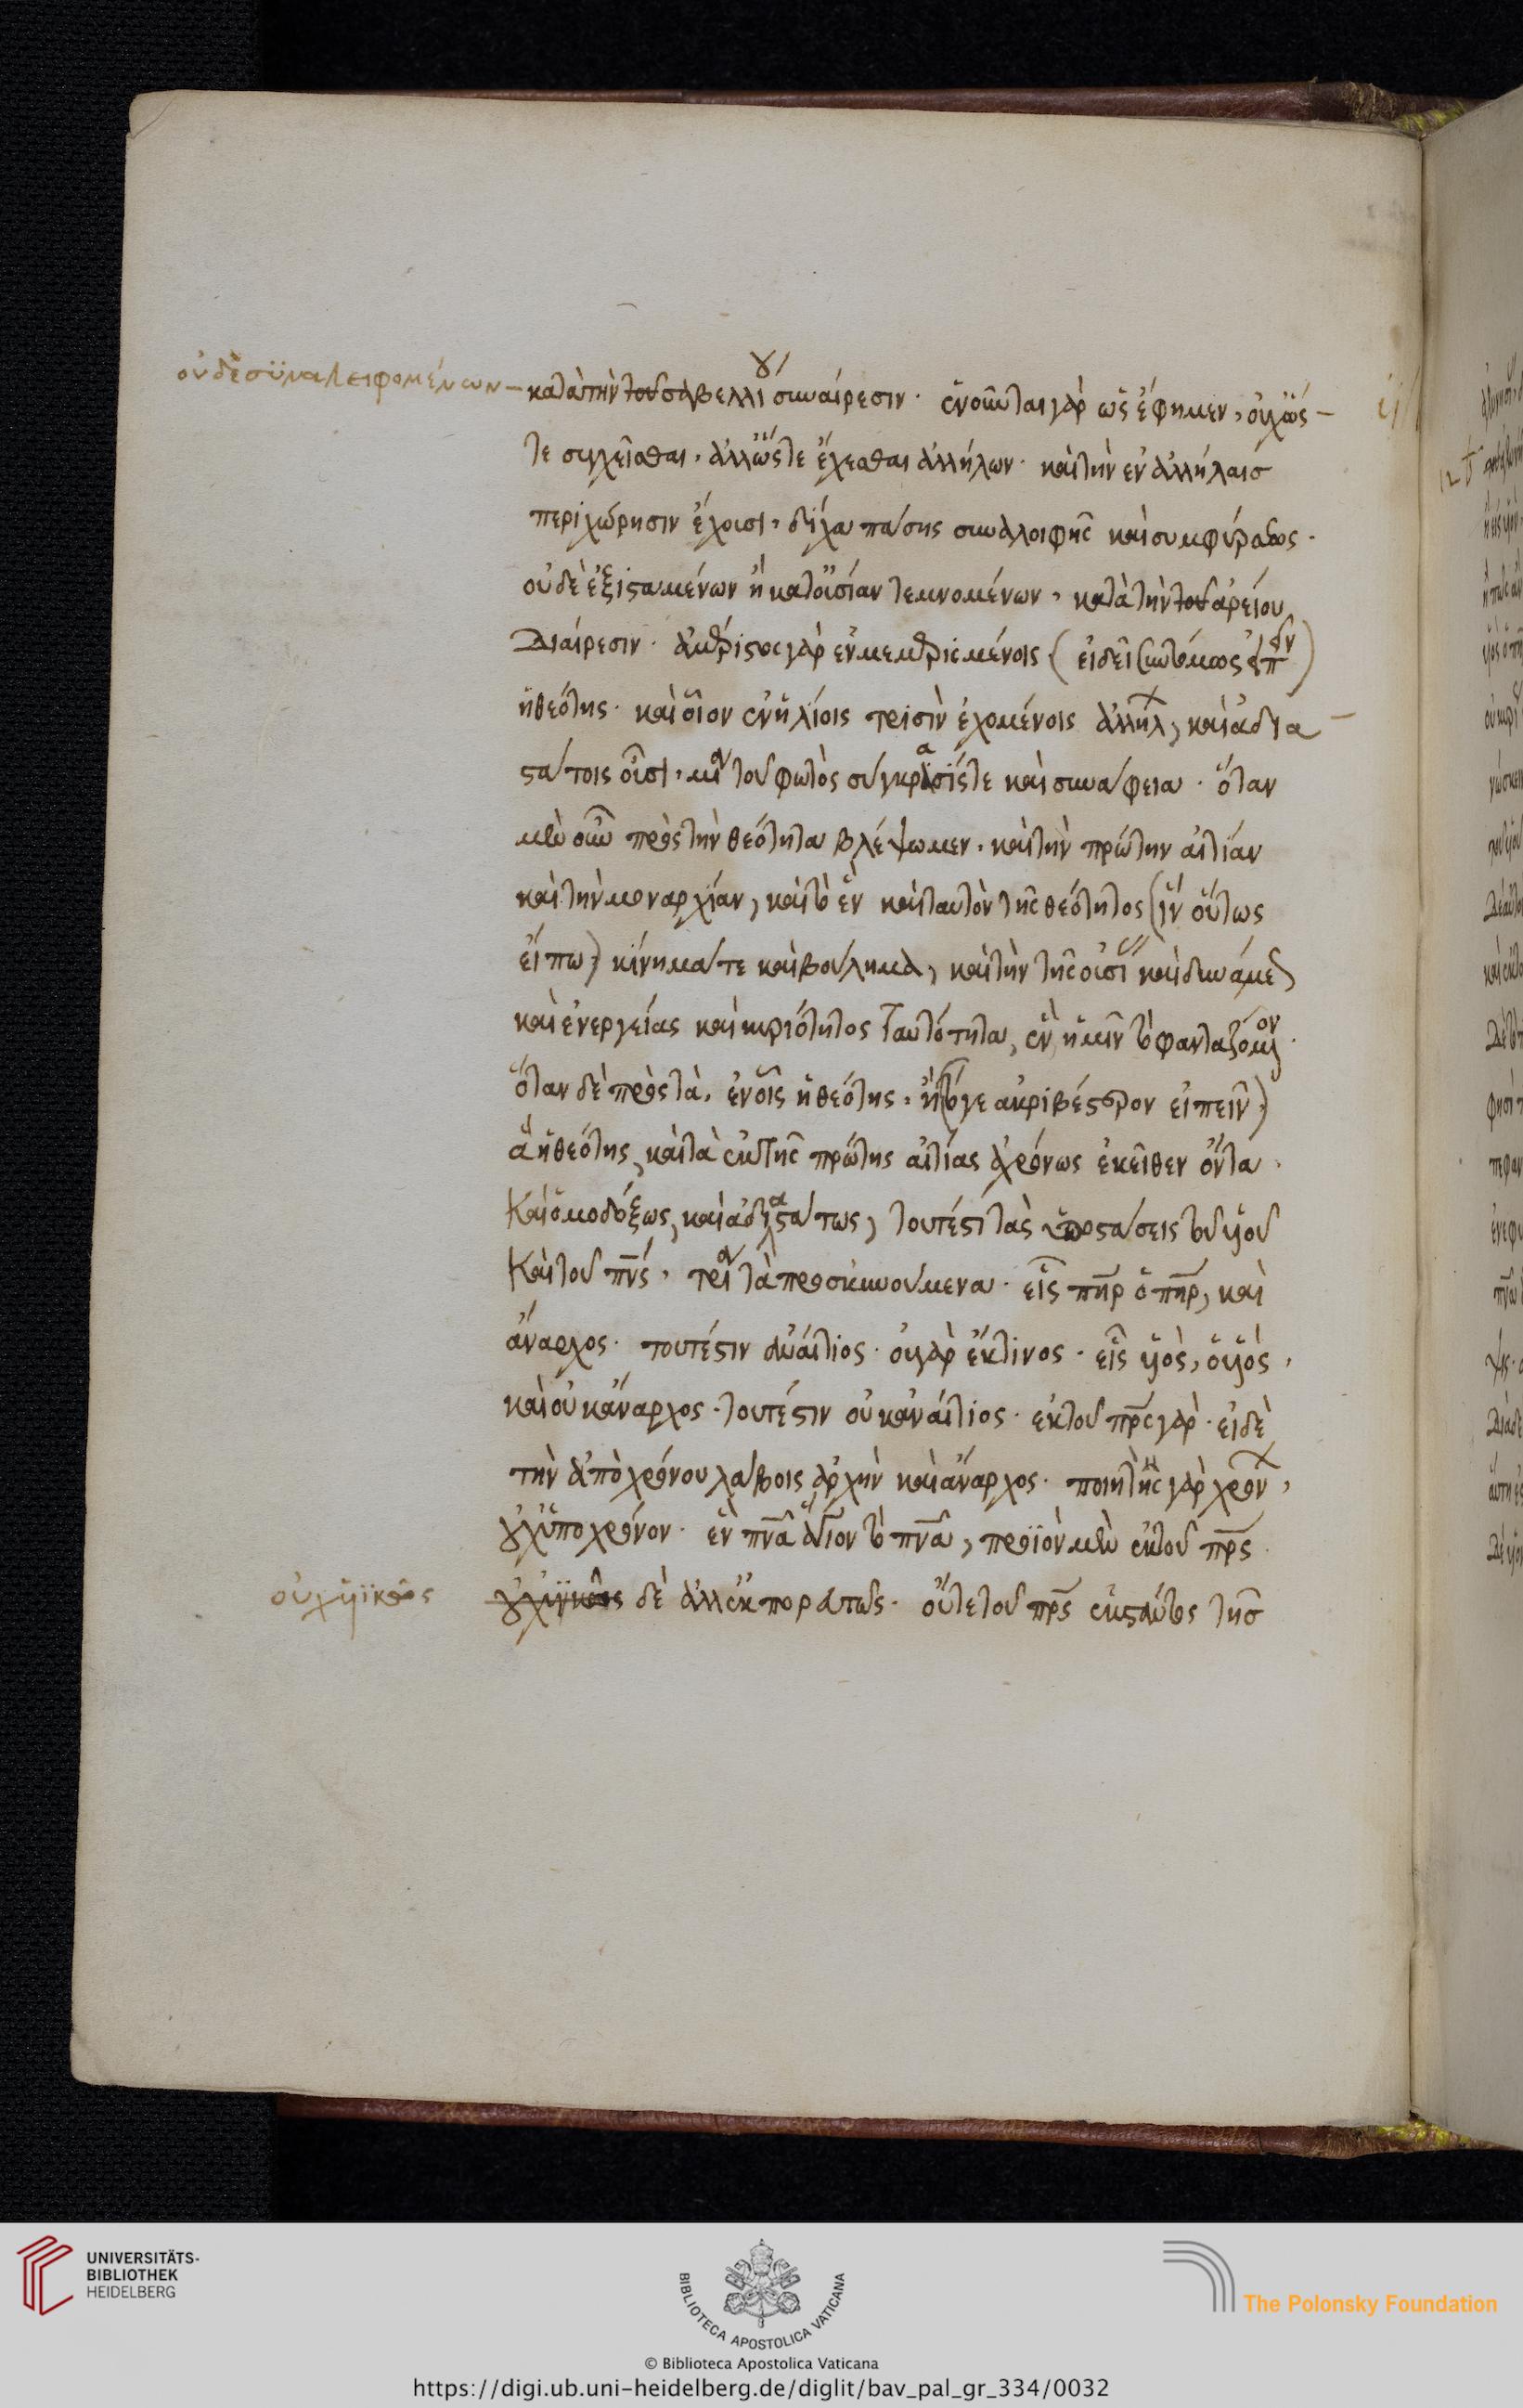 οὐδὲ συναλειφομένων –
κατὰ τὴν τοῦ σαβελλίου συναίρεσιν· ἑνοῦνται γὰρ ὡς ἔφημεν, οὐχ ὥς –
τε συγχεῖσθαι, ἀλλ' ὥστε ἔχεσθαι ἀλλήλων· καὶ τὴν ἐν ἀλλήλαις
περιχώρησιν ἔχουσι, δίχα πάσης συναλοιφῆς καὶ συμφύρσεως·
οὐδὲ ἐξισταμένων ἢ κατ' οὐσίαν τεμνομένων, κατὰ τὴν τοῦ ἀρείου
διαίρεσιν· ἀμέριστος γὰρ ἐν μεμερισμένοις (εἰ δεῖ συντόμως εἰπεῖν)
ἡ θεότης· καὶ οἷον ἐν ἡλίοις τρισὶν ἐχομένοις ἀλλήλων, καὶ ἀδια –
στάτοις οὖσι, μία τοῦ φωτὸς σύγκρασίς τε καὶ συνάφεια· ὅταν
μὲν οὖν πρὸς τὴν θεότητα βλέψωμεν, καὶ τὴν πρώτην αἰτίαν
καὶ τὴν μοναρχίαν, καὶ τὸ ἓν καὶ ταυτὸν τῆς θεότητος (ἵν' οὕτως
εἴπω) κίνημά τε καὶ βούλημα, καὶ τὴν τῆς οὐσίας καὶ δυνάμεως
καὶ ἐνεργείας καὶ κυριότητος ταυτότητα, ἓν ἡμῖν τὸ φανταζόμενον·
ὅταν δὲ πρὸς τὰ, ἐν οἷς ἡ θεότης, ἢ (τό γε ἀκριβέστερον εἰπεῖν)
ἃ ἡ θεότης, καὶ τὰ ἐκ τῆς πρώτης αἰτίας ἀχρόνως ἐκεῖθεν ὄντα·
καὶ ὁμοδόξως, καὶ ἀδιαστάτως, τουτέστι τὰς ὑποστάσεις τοῦ υἱοῦ
καὶ τοῦ πνς, τρία τὰ προσκυνούμενα· εἷς πηρ ὁ πηρ, καὶ
ἄναρχος· τουτέστιν ἀναίτιος· οὐ γὰρ ἔκ τινος· εἷς υἱὸς, ὁ υἱὸς,
καὶ οὐκ ἄναρχος· τουτέστιν οὐκ ἀναίτιος· ἐκ τοῦ πρς γὰρ· εἰ δὲ
τὴν ἀπὸ χρόνου λάβοις ἀρχὴν καὶ ἄναρχος· ποιητὴς γὰρ χρόνων,
οὐχ ὑπὸ χρόνον· ἓν πνα ἅγιον τὸ πνα, προϊὸν μὲν ἐκ τοῦ πρς·
οὐχ υἱϊκῶς
οὐχ υἱϊκῶς δὲ ἀλλ' ἐκπορευτῶς· οὔτε τοῦ πρς ἐκστάντος τῆς
UNIVERSITÄTS-
BIBLIOTHEK
HEIDELBERG
BIBLIOTECA APOSTOLICA VATICANA
The Polonsky Foundation
© Biblioteca Apostolica Vaticana
https://digi.ub.uni-heidelberg.de/diglit/bav_pal_gr_334/0032